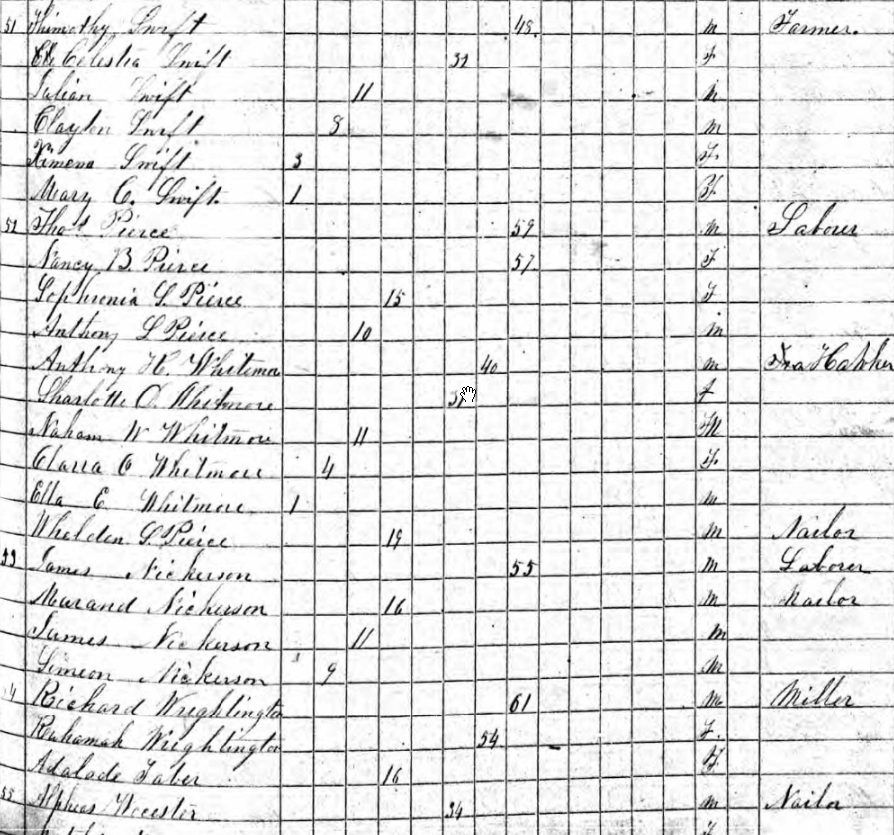 51 Thimothy Swift 48 m Farmer.
Celestia Swift 32 F
Julian Swift 11 m
Clayton Swift 8 m
Ximena Swift 3 F.
Mary C. Swift. 1 F.
52 Thos Pierce 59 m Labour
Nancy B. Pierce 57 F
Sophronia S. Pierce 15 F
Anthony S Pierce 10 m
Anthony H. Whitmore 40 m
Charlotte D. Whitmore f
Naham W Whitmore 11 M
Clarra C Whitmore 4 F.
Ella E Whitmore 1 m
Whelden S. Pierce 19 m Nailor
53 James Nickerson 55 m Laborer
Nickerson 16 m Nailor
James Nickerson 11 m
Simeon Nickerson 9 m
54 Richard Wrightington 61 m Miller
Ruhamah Wrightington 54 F.
Adalade Taber 16 F
55 Alpheus Wocester 34 m Nailor
F